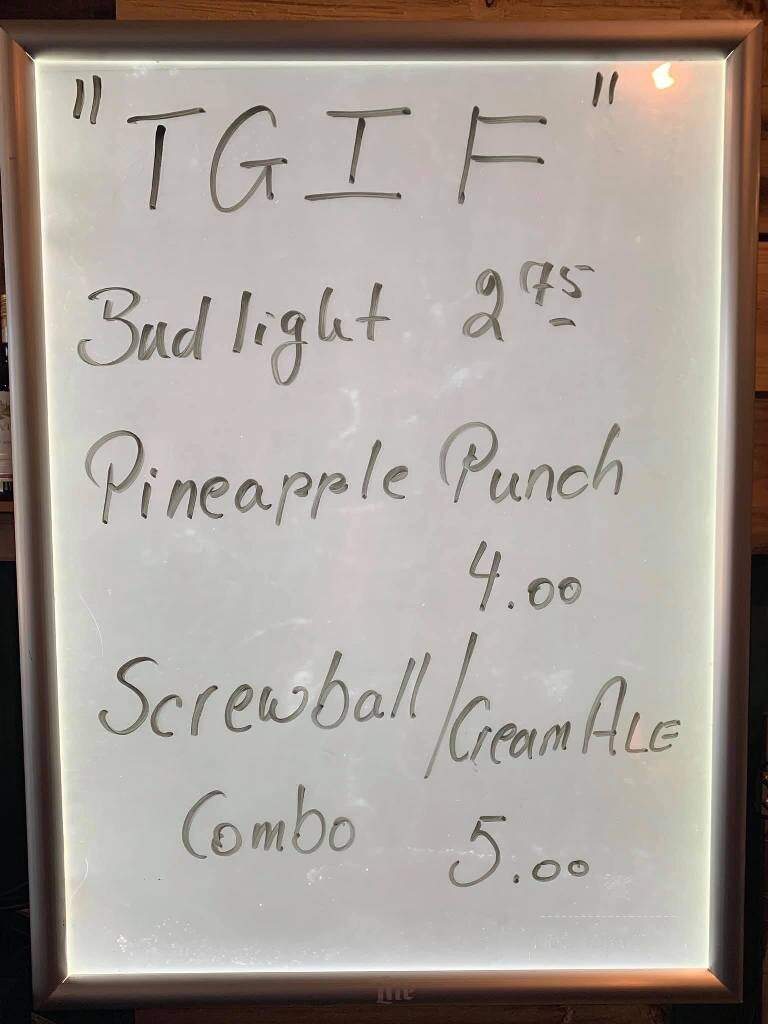 "TGIF"
Bud light 2 75
Pineapple Punch
4.00
Screwball/Cream ALE
Combo 5.00
Lite